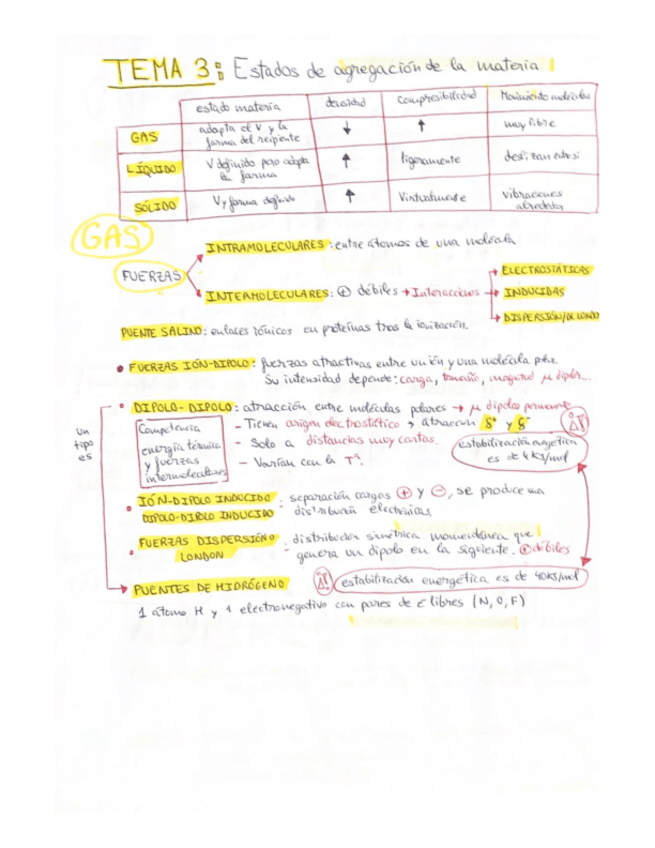 TEMA 3: Estados de agregación de la materia
estado materia densidad compresibilidad Movimiento molecular
GAS adopta el V y la forma del recipente ↓ ↑ muy libre
LÍQUIDO V definido pero adopta la forma ↑ ligeramente deslizan entre si
SÓLIDO V y forma definido ↑ Virtualmente vibraciones alrededor
GAS
FUERZAS
INTRAMOLECULARES: entre átomos de una molécula
INTERMOLECULARES: ⊕ débiles → Interacciones
ELECTROSTÁTICAS
INDUCIDAS
DISPERSIÓN/DE LONDON
PUENTE SALINO: enlaces iónicos en proteínas tras la ionización.
• FUERZAS IÓN-DIPOLO: fuerzas atractivas entre un ión y una molécula polar.
Su intensidad depende: carga, tamaño, magnitud μ dipolr...
• DIPOLO-DIPOLO: atracción entre moléculas polares → μ dipolar permanente
un tipo es
Competencia
energía térmica
y fuerzas
intermoleculares
- Tienen origen electrostático → atraccion δ+ y δ-
- Solo a distancias muy cortas.
- Varían con la Tª.
estabilización energética
es de 4 KJ/mol
• IÓN-DIPOLO INDUCIDO
DIPOLO-DIPOLO INDUCIDO
: separación cargas ⊕ y ⊖, se produce una
distribución electrónicas
• FUERZAS DISPERSIÓN O
LONDON
: distribución simétrica momentánea que
genera un dipolo en la siguiente. ⊕ débiles
PUENTES DE HIDRÓGENO
estabilización energética es de 40KJ/mol
1 átomo H y 1 electronegativo con pares de e- libres (N, O, F)